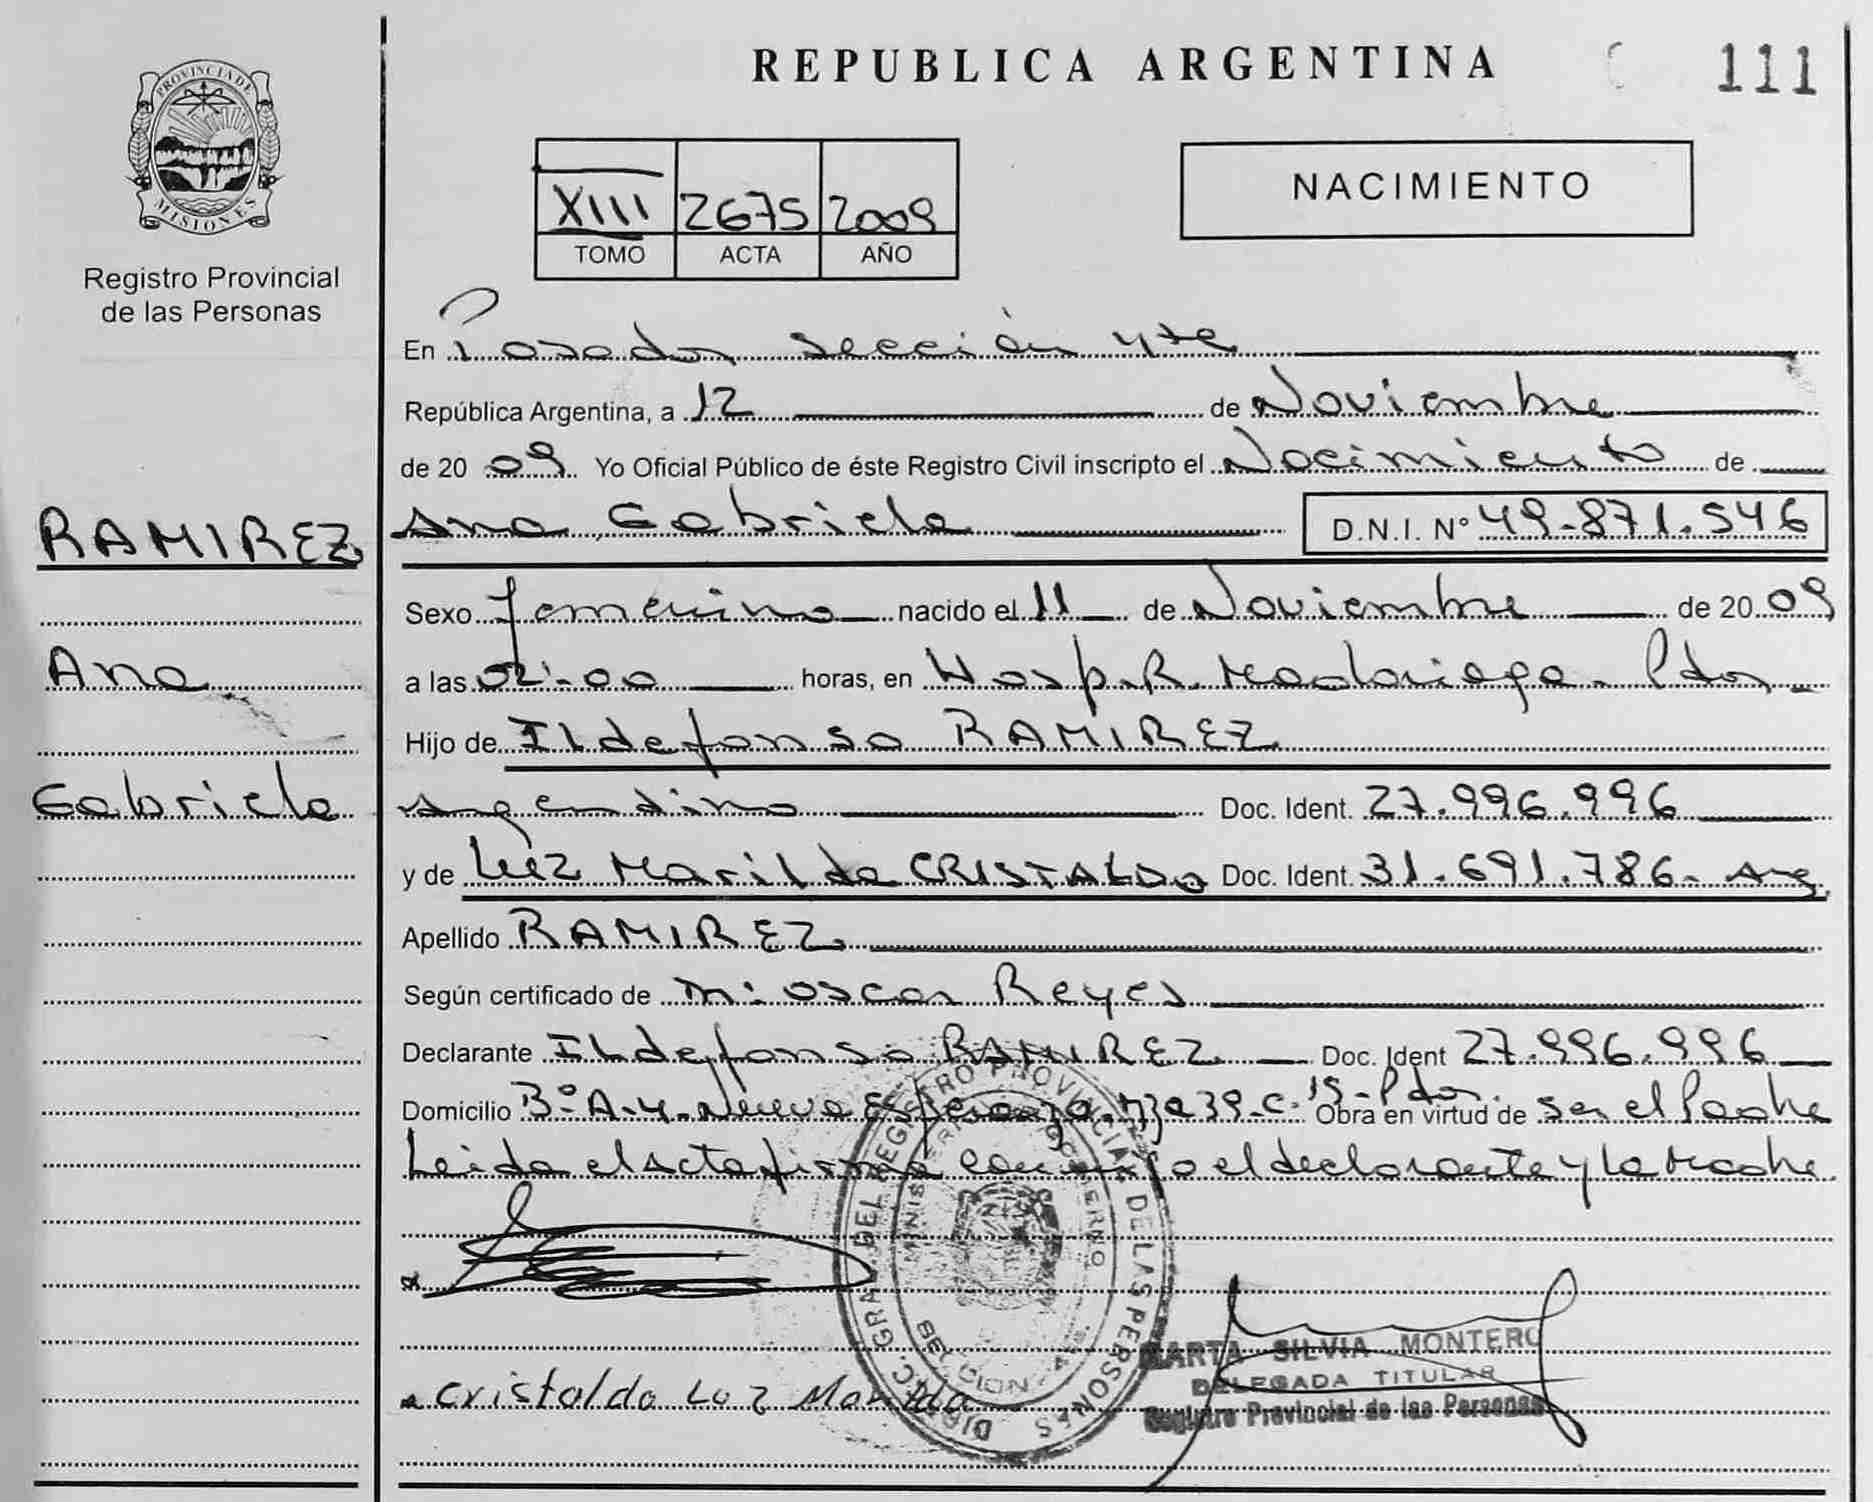 REPUBLICA ARGENTINA
111
PROVINCIA DE MISIONES
Registro Provincial
de las Personas
XIII 2675 2009
TOMO ACTA AÑO
NACIMIENTO
En Posadas sección 4ta
República Argentina, a 12 de Noviembre
de 20 09 Yo Oficial Público de éste Registro Civil inscripto el Nacimiento de
RAMIREZ
Ana Gabriela D.N.I. Nº 49.871.546
Sexo femenino nacido el 11 de Noviembre de 20 09
Ana
a las 02:00 horas, en Hosp. R. Madariaga - Pdas
Hijo de Ildefonso RAMIREZ
Gabriela
Argentino Doc. Ident. 27.996.996
y de Luz Marilda CRISTALDO Doc. Ident. 31.691.786 - Arg.
Apellido RAMIREZ
Según certificado de Oscar Reyes
Declarante Ildefonso RAMIREZ Doc. Ident 27.996.996
Domicilio Bº A-4 Nueva Esperanza 39 C. 19 - Pdas. Obra en virtud de ser el Padre
Leida el acta firma conmigo el declarante y la Madre
DIREC. GRAL. DEL REGISTRO PROVINCIAL DE LAS PERSONAS
MINISTERIO GOBIERNO
MARTA SILVIA MONTERO
DELEGADA TITULAR
Registro Provincial de las Personas
Cristaldo Luz Marilda